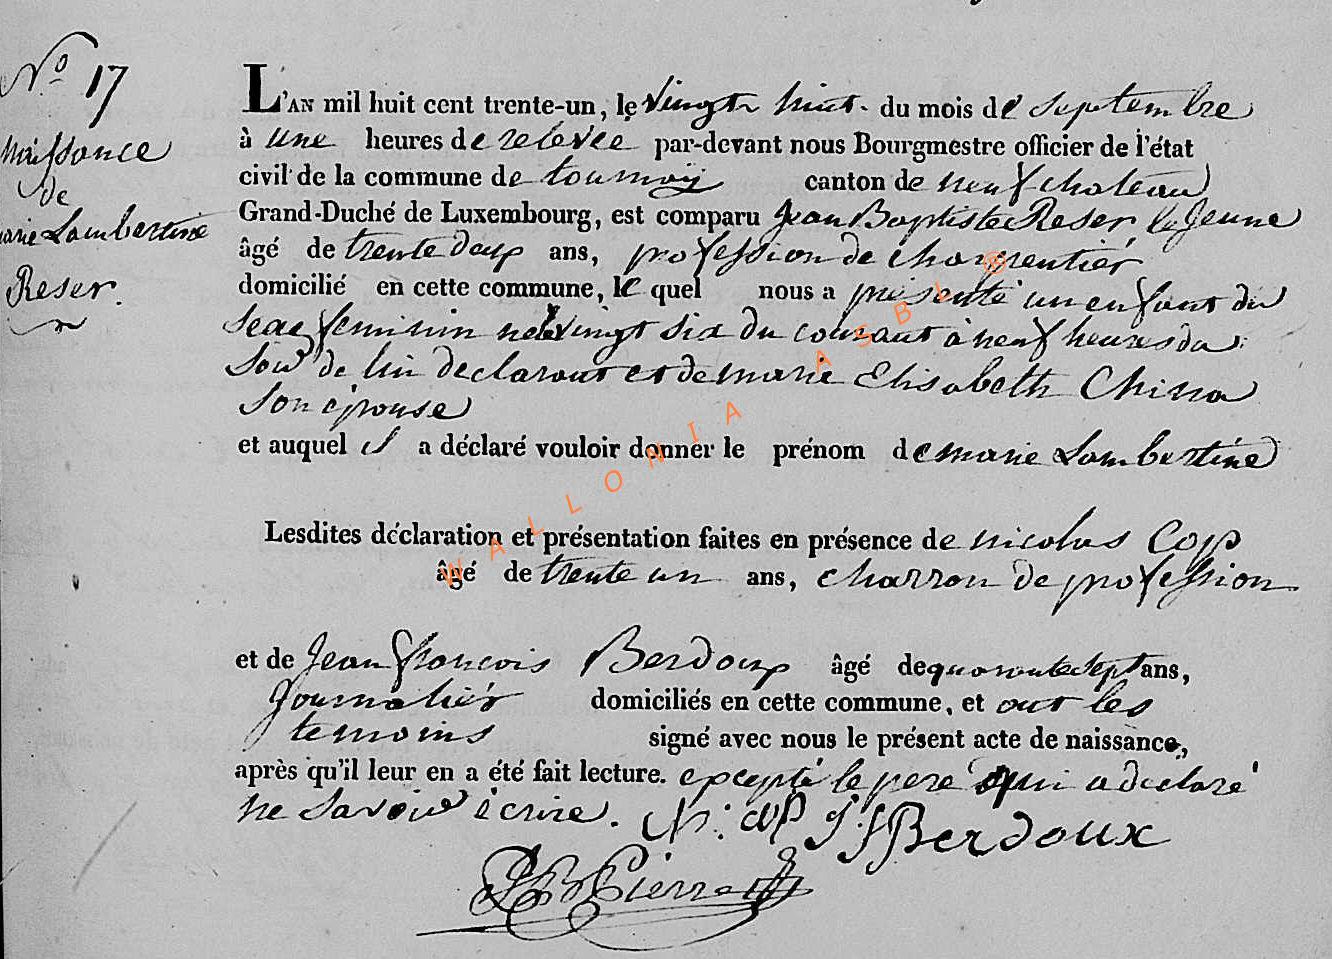 N° 17
naissance
de
marie Lambertine
Reser.
L'AN mil huit cent trente-un, le vingt huit du mois de septembre
à une heures de relevée par-devant nous Bourgmestre officier de l'état
civil de la commune de tournay canton de neufchateau
Grand-Duché de Luxembourg, est comparu Jean Baptiste Reser le Jeune
âgé de trente deux ans, profession de charpentier
domicilié en cette commune, le quel nous a présenté un enfant du
sexe feminin né le vingt six du courant à neuf heures du
soir de lui declarant et de marie Elisabeth China
son épouse
et auquel il a déclaré vouloir donner le prénom de marie Lambertine
Lesdites déclaration et présentation faites en présence de nicolas Cop
âgé de trente un ans, charron de profession
et de Jean françois Berdoux âgé de quarante sept ans,
Journalier domiciliés en cette commune, et ont les
temoins signé avec nous le présent acte de naissance,
après qu'il leur en a été fait lecture. excepté le pere qui a declaré
ne savoir écrire. N: Cop J f Berdoux
Pierrard
WALLONIA ASBL ®